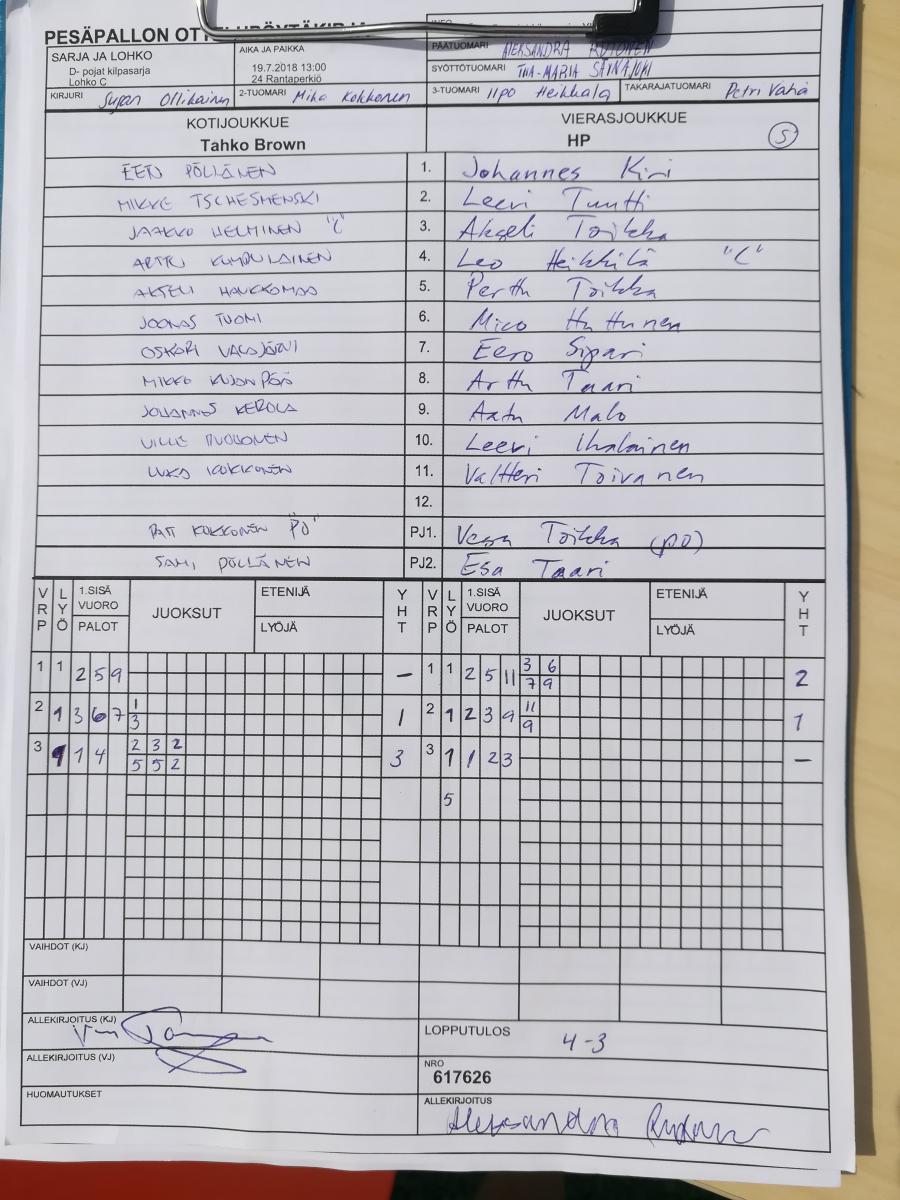 PESÄPALLON OTTELUPÖYTÄKIRJA
INFO
SARJA JA LOHKO
D- pojat kilpasarja
Lohko C
AIKA JA PAIKKA
19.7.2018 13:00
24 Rantaperkiö
PÄÄTUOMARI ALEKSANDRA
SYÖTTÖTUOMARI TIIA-MARIA SÄYNÄJOKI
KIRJURI Ollikainen
2-TUOMARI Mika Kokkonen
3-TUOMARI Ilpo Heikkala
TAKARAJATUOMARI Petri Vaha
KOTIJOUKKUE
Tahko Brown
VIERASJOUKKUE
HP
S
EETU PÖLLÄNEN 1. Johannes Kiri
MIKKE TSCHESMENSKI 2. Leevi Tuutti
JAAKKO HELMINEN "C" 3. Akseli Toikka
ARTTU KUMPULAINEN 4. Leo Heikkilä "C"
AKSELI HAUKKOMAA 5. Perttu Toikka
JOONAS TUOMI 6. Mico Huttunen
OSKARI 7. Eero Sipari
MIKKO KUJANPÄÄ 8. Arttu Taari
JOHANNES KEROLA 9. Aatu Malo
VILLE 10. Leevi Ihalainen
LUKAS KOKKONEN 11. Valtteri Toivanen
12.
KOKKONEN "PJ" PJ1. Vesa Toikka (PO)
SAMI PÖLLÄNEN PJ2. Esa Taari
VRP LYÖ 1.SISÄ VUORO PALOT JUOKSUT ETENIJÄ LYÖJÄ YHT VRP LYÖ 1.SISÄ VUORO PALOT JUOKSUT ETENIJÄ LYÖJÄ YHT
1 1 2 5 9 – 1 1 2 5 11 3 6 2
7 9
2 1 3 6 7 1 1 2 1 2 3 9 11 1
3 9
3 1 1 4 2 3 2 3 3 1 1 2 3 –
5 5 2
5
VAIHDOT (KJ)
VAIHDOT (VJ)
ALLEKIRJOITUS (KJ)
LOPPUTULOS
4-3
ALLEKIRJOITUS (VJ)
NRO
617626
HUOMAUTUKSET
ALLEKIRJOITUS
Aleksandra